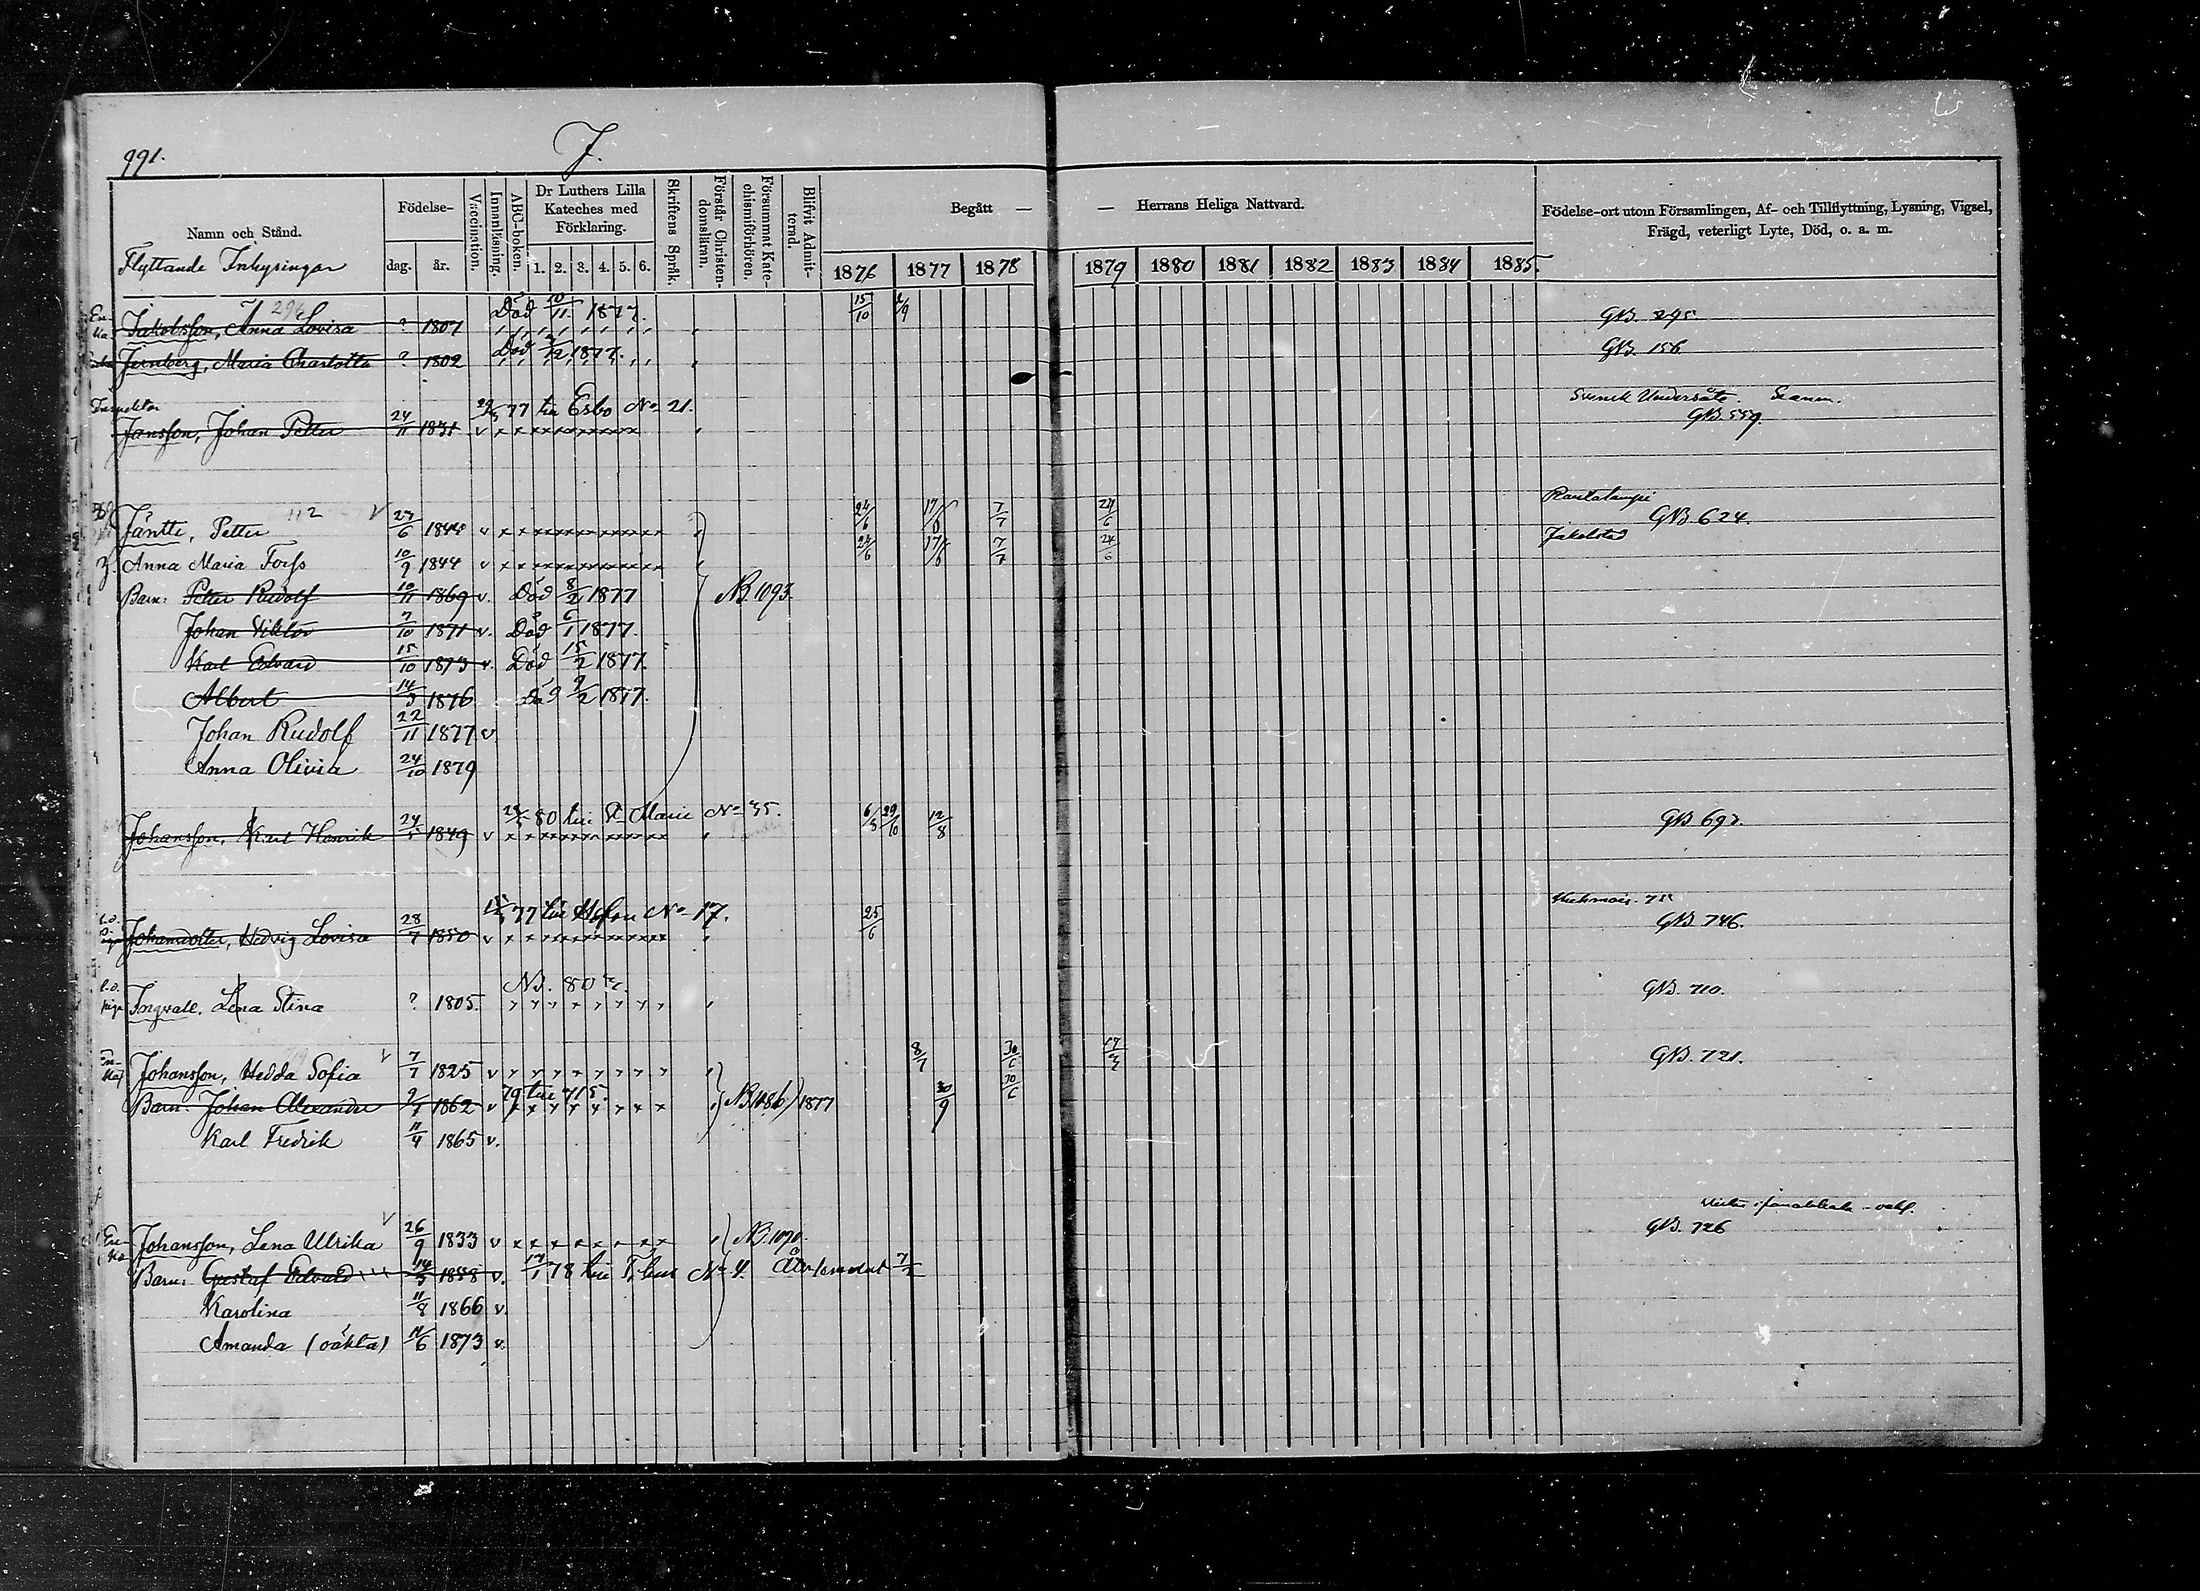 991.
J.
Namn och Stånd.
Flyttande Inhysingar
Födelse-
dag. år.
Vaccination.
Innanläsning.
ABC-boken.
Dr Luthers Lilla Kateches med Förklaring.
1. 2. 3. 4. 5. 6.
Skriftens Språk.
Förstår Christendomsläran.
Försummat Katechismiförhören.
Blifvit Admitterad.
Begått — — Herrans Heliga Nattvard.
1876 1877 1878 1879 1880 1881 1882 1883 1884 1885.
Födelse-ort utom Församlingen, Af- och Tillflyttning, Lysning, Vigsel,
Frägd, veterligt Lyte, Död, o. a. m.
296 Död 10/11 1877. 15/10
Enka Jakobsson, Anna Lovisa ? 1807 GB. 295
Död 1877.
Jernberg, Maria Charlotta ? 1802 GB. 156
77 till Esbo No 21. Svensk Undersåte.
Jansson, Johan Petter 24/11 1831 v GB 557.
Rautalampi
Jäntti, Petter 112 27/6 1844 v 24/6 17/6 7/7 24/6 GB 624.
Jakobstad
Anna Maria Forss 10/9 1844 v 24/6 17/6 7/7 24/6
Barn: Petter Rudolf 10/11 1869 v. Död 8/2 1877 NB. 1093.
Johan Viktor 7/10 1871 v. Död 6/1 1877.
Karl Edvard 15/10 1873 v. Död 15/2 1877.
Albert 14/3 1876 Död 9/2 1877.
Johan Rudolf 22/11 1877 v.
Anna Olivia 24/10 1879
80 till St Marie No 35. 6/8 29/10 12/8
Johansson, Karl Henrik 24/5 1849 v GB 697.
77 till No 17. 25/6
Johansdotter, Hedvig Lovisa 28/7 1850 v GB. 746.
Nd. 80
Ingvall, Lena Stina ? 1805. GB. 710.
Enka Johansson, Hedda Sofia 7/7 1825 v 8/7 30/6 GB. 721.
79 till 715.
Barn: Johan Alexander 1862 v 1877 30/9 30/6
Karl Fredrik 11/4 1865 v.
Enka Johansson, Lena Ulrika 26/9 1833 v NB. 1090. GB. 726
Barn: Gustaf Edvard 14/5 1858 v. 78 till No 4.
Karolina 11/8 1866 v.
Amanda (oäkta) 11/6 1873 v.